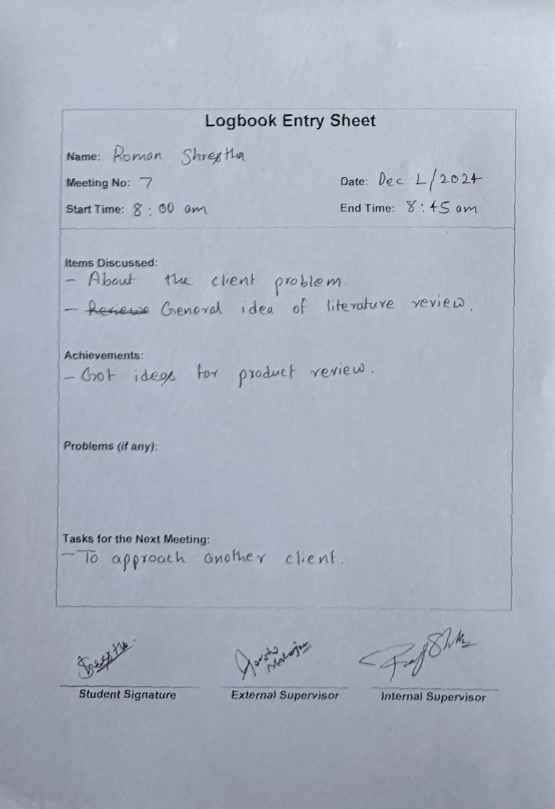 Logbook Entry Sheet
Name: Roman Shrestha
Meeting No: 7
Date: Dec 1/2024
Start Time: 8:00 am
End Time: 8:45 am
Items Discussed:
- About the client problem.
- General idea of literature review.
Achievements:
- Got ideas for product review.
Problems (if any):
Tasks for the Next Meeting:
- To approach another client.
Shrestha
Maharjan
Student Signature
External Supervisor
Internal Supervisor